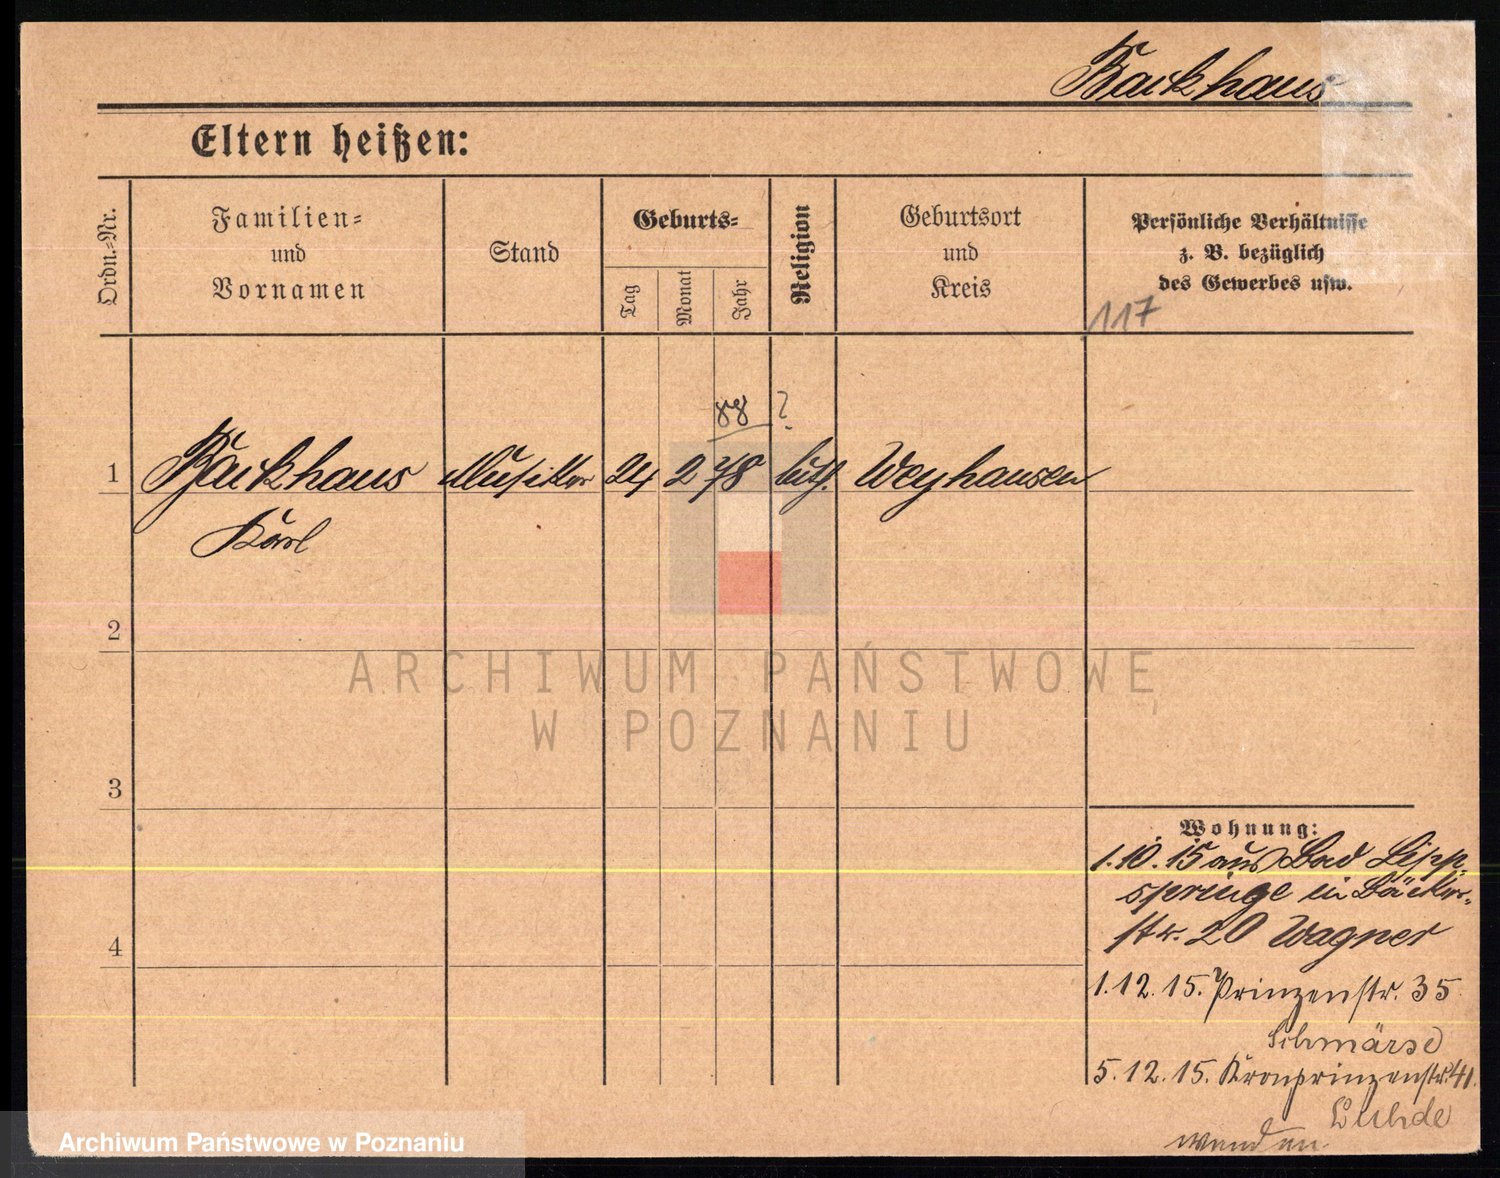 Backhaus
Eltern heißen:
Ordn.-Nr.
Familien-
und
Vornamen
Stand
Geburts-
Tag
Monat
Jahr
Religion
Geburtsort
und
Kreis
Persönliche Verhältnisse
z. B. bezüglich
des Gewerbes usw.
117
88 ?
1 Backhaus Musiker 24 2 78 luth. Weyhausen
Karl
2
ARCHIWUM PAŃSTWOWE
W POZNANIU
3
Wohnung:
1.10.15 aus Bad Lipp-
springe in Bäcker-
str. 20 Wagner
4
1.12.15. Prinzenstr. 35
Schmärse
5.12.15. Kronprinzenstr. 41.
Luhde
wenden
Archiwum Państwowe w Poznaniu